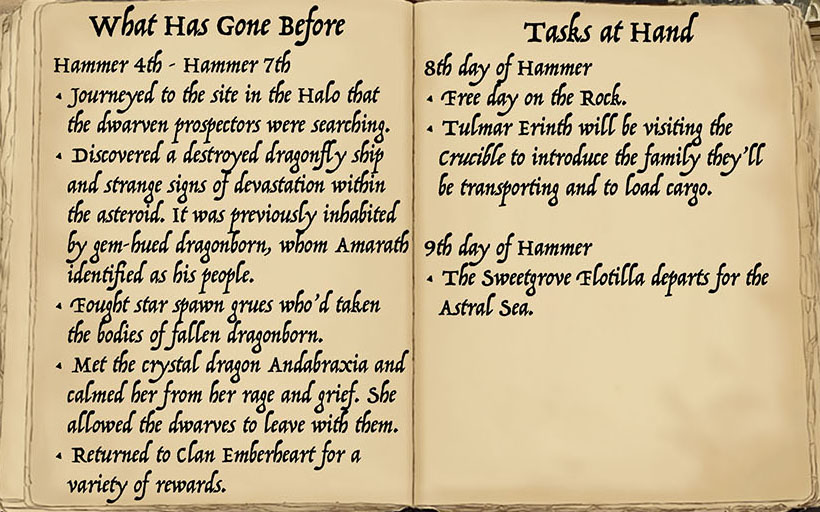 What Has Gone Before
Hammer 4th - Hammer 7th
• Journeyed to the site in the Halo that
the dwarven prospectors were searching.
• Discovered a destroyed dragonfly ship
and strange signs of devastation within
the asteroid. It was previously inhabited
by gem-hued dragonborn, whom Amarath
identified as his people.
• Fought star spawn grues who'd taken
the bodies of fallen dragonborn.
• Met the crystal dragon Andabraxia and
calmed her from her rage and grief. She
allowed the dwarves to leave with them.
• Returned to Clan Emberheart for a
variety of rewards.
Tasks at Hand
8th day of Hammer
• Free day on the Rock.
• Tulmar Erinth will be visiting the
Crucible to introduce the family they'll
be transporting and to load cargo.
9th day of Hammer
• The Sweetgrove Flotilla departs for the
Astral Sea.